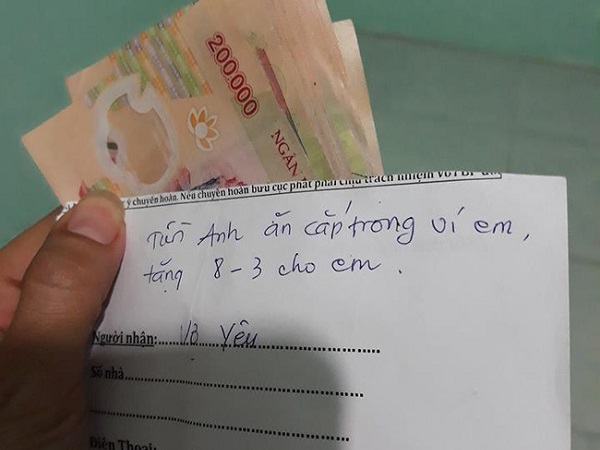 200000
NGÂN
ý chuyển hoàn. Nếu chuyển hoàn bưu cục phát phải chịu trách nhiệm với BP
Tiền Anh ăn cắp trong ví em,
tặng 8-3 cho em.
Người nhận: Vợ Yêu
Số nhà
Điện Thoại: